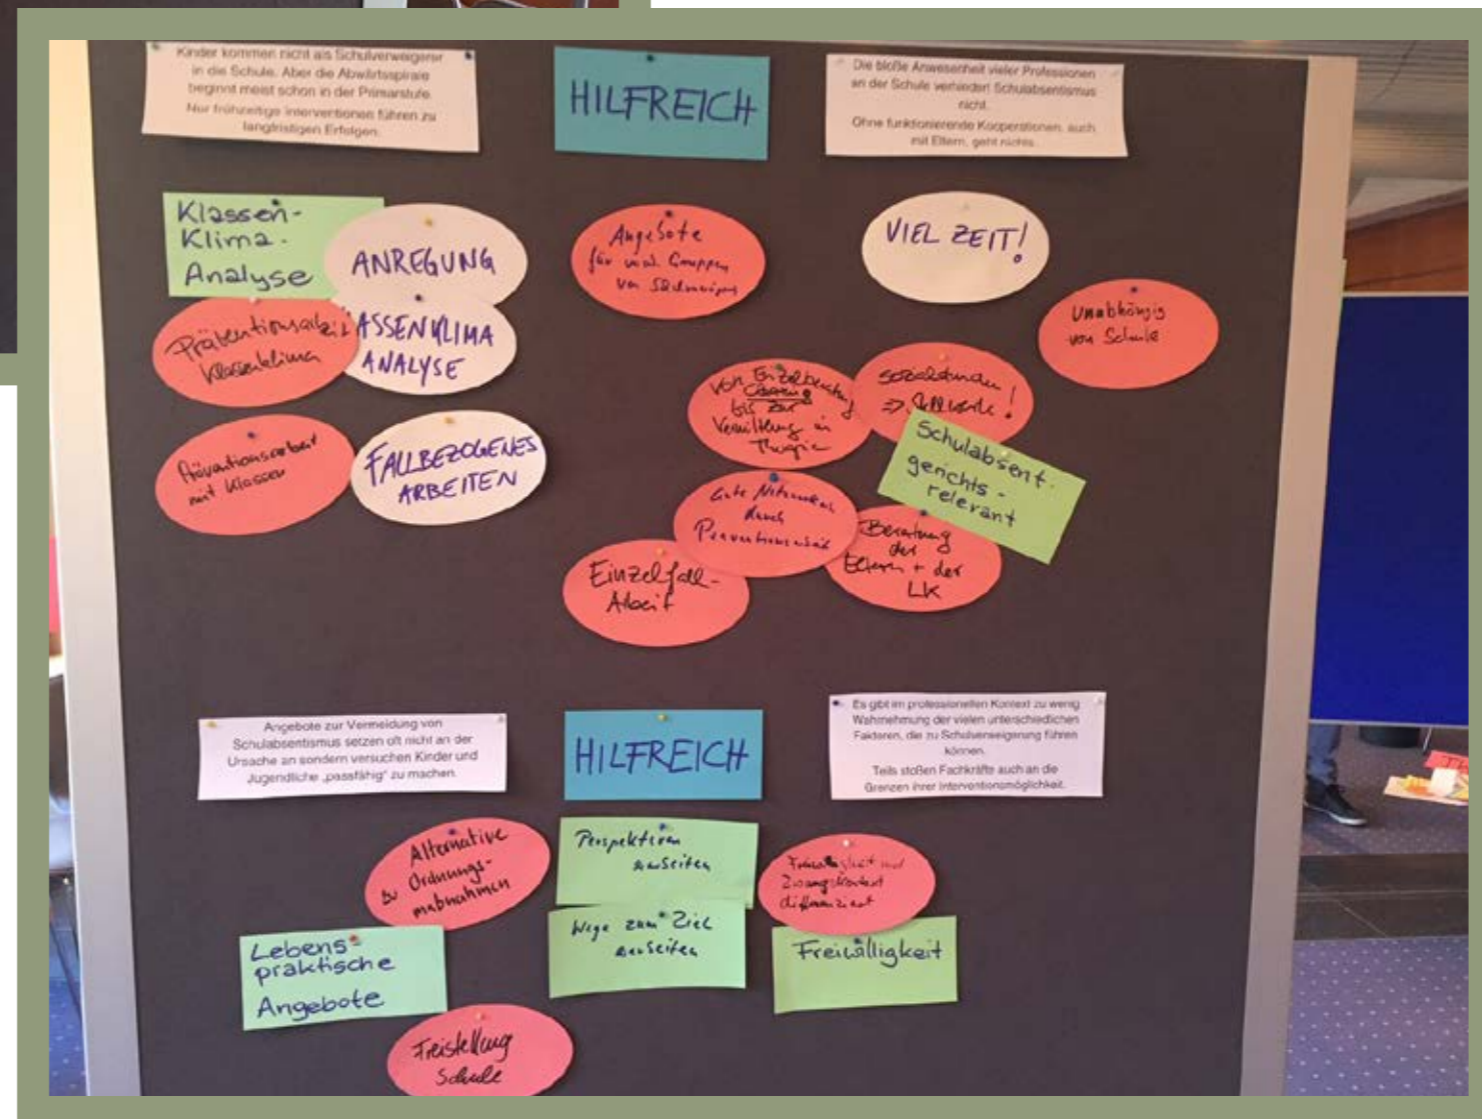 Kinder kommen nicht als Schulverweigerer
in die Schule. Aber die Abwärtsspirale
beginnt meist schon in der Primarstufe.
Nur frühzeitige Interventionen führen zu
langfristigen Erfolgen.
HILFREICH
Die bloße Anwesenheit vieler Professionen
an der Schule verhindert Schulabsentismus
nicht.
Ohne funktionierende Kooperationen, auch
mit Eltern, geht nichts.
Klassen-
Klima-
Analyse
ANREGUNG
Präventionsarbeit
Klassenklima
ASSENKLIMA
ANALYSE
Präventionsarbeit
mit Klassen
FALLBEZOGENES
ARBEITEN
Angebote
für Gruppen
von
VIEL ZEIT!
Unabhängig
von Schule
Von Einzelberatung
bis zur
Vermittlung in
!
Schulabsent.
gerichts-
relevant
Gute
durch
Präventionsarbeit
Beratung
der
Eltern + der
LK
Einzelfall-
Arbeit
Angebote zur Vermeidung von
Schulabsentismus setzen oft nicht an der
Ursache an sondern versuchen Kinder und
Jugendliche „passfähig" zu machen.
HILFREICH
Es gibt im professionellen Kontext zu wenig
Wahrnehmung der vielen unterschiedlichen
Faktoren, die zu Schulverweigerung führen
können.
Teils stoßen Fachkräfte auch an die
Grenzen ihrer Interventionsmöglichkeit.
Alternative
zu Ordnungs-
maßnahmen
Perspektiven
Wege zum Ziel
Freiwilligkeit und
Zwangskontext
differenziert
Freiwilligkeit
Lebens-
praktische
Angebote
Freistellung
Schule